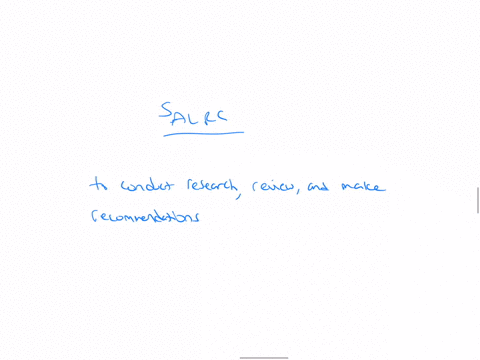 SALRC
to conduct research, review, and make
recommendations